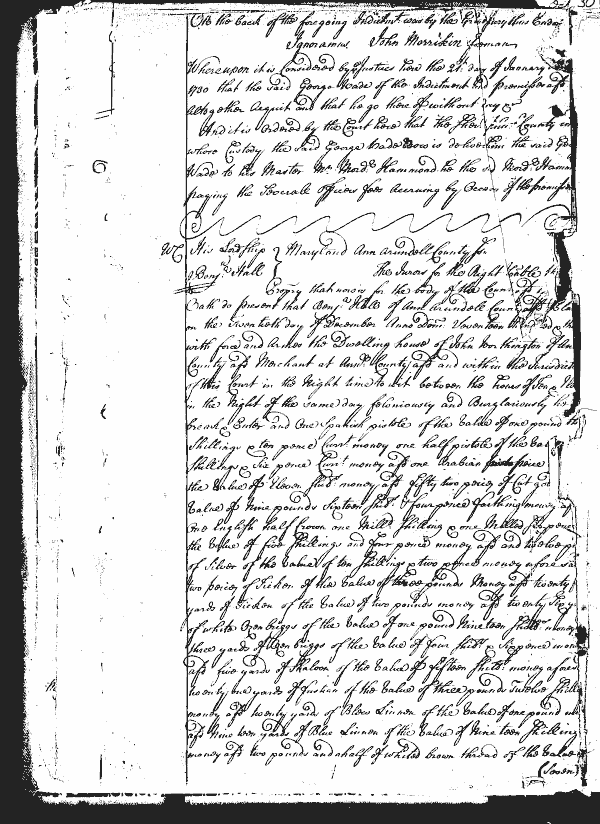 On the back of the foregoing Indictmt. was by the Grand Jury thus Endors
Ignoramus John Merrikin foreman
Whereupon it is Considered by ye Justices here the 21st. day of January
1730 that the said George Wade of the Indictment and premises afd
altogether Acquit and that he go there of without day &c
And it is Ordered by the Court here that the Sher County in
whose Custody the said George Wade now is deliver him the said Geo
Wade to his Master Mr. Mord: Hammond he the sd Mord: Hamm
paying the Severale officers fees Accruing by Occon of the premises
His Lordship Maryland Ann Arundell County ss
v Benja. Hall The Jurors for the Right Honble the
Propry that now is for the body of the County afd
Oath do present that Benja. Hall of Ann Arundell County afd
on the Twentieth day of December Anno Dom: Seventeen Hundred
with force and Armes the Dwelling house of John Worthington of Ann
County afd Merchant at Annpl County afd and within the Jurisdict
of this Court in the Night time to wit between the hours of Ten &
in the Night of the same day feloniously and Burglariously did
break & Enter and One Spanish pistole of the Value of one pound
Shillings & ten pence Curr.t money one half pistole of the Val
Shillings & Six pence Curr.t money afd one Arabian piece
the value of Eleven Shills. money afd fifty two peices of Cut gold
Value of Nine pounds Sixteen Shills. & four pence farthing money af
one English half Crown one Milld Shilling & one Milled Sixpence
the Value of five Shillings and four pence money afd and twelve p
of Silver of the value of ten Shillings & two pence money afores
two peices of Ticken of the Value of three pounds Money afd twenty
yards of Ticken of the Value of two pounds money afd twenty Six y
of white Ozenbriggs of the Value of one pound Nineteen Shills. money
three yards of Ozenbriggs of the Value of four Shills. & Sixpence mon
afd five yards of Shaloon of the Value of fifteen Shills. money afores
twenty one yards of fustian of the Value of three pounds Twelve Shills
money afd twenty yards of Blew Linnen of the Value of one pound
afd Nineteen yards of Blue Linnen of the Value of Nineteen Shilling
money afd two pounds and a half of whited brown thread of the Value
(Seven)